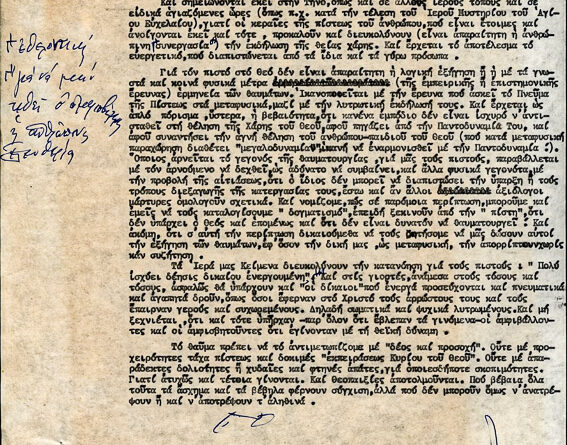 καί σημειώνεται ἐκεῖ στήν Τῆνο, ὅπως καί σέ ἄλλους ἱερούς τόπους καί σέ
εἰδικά ἁγιαζόμενες ὧρες (ὅπως π.χ. κατά τήν τέλεση τοῦ Ἱεροῦ Μυστηρίου τοῦ Ἁγί-
ου Εὐχελαίου), γιατί οἱ κεραῖες τῆς πίστεως τοῦ ἀνθρώπου, πού εἶναι ἕτοιμες καί
ἀνοίγονται ἐκεῖ καί τότε, προκαλοῦν καί διευκολύνουν (εἶναι ἀπαραίτητη ἡ ἀνθρώ-
πινη συνεργασία") τήν ἐκδήλωση τῆς θείας χάρης. Καί ἔρχεται τό ἀποτέλεσμα τό
εὐεργετικό, πού διαπιστώνεται ἀπό τά ἴδια καί τά γύρω πρόσωπα.
Γιά τόν πιστό στό Θεό δέν εἶναι ἀπαραίτητη ἡ λογική ἐξήγηση ἤ ἡ μέ τά γνω-
στά καί κοινά φυσικά μέτρα (τῆς ἐμπειρικῆς ἤ ἐπιστημονικῆς
ἐρευνας) ἑρμηνεία τῶν θαυμάτων. Ἱκανοποιεῖται μέ τήν ἔρευνα πού ἀσκεῖ τό Πνεῦμα
τῆς Πίστεως στά μεταφυσικά, μαζί μέ τήν λυτρωτική ἐκδήλωσή τους. Καί ἔρχεται ὡς
ἁπλό πόρισμα, ὕστερα, ἡ βεβαιότητα, ὅτι κανένα ἐμπόδιο δέν εἶναι ἰσχυρό ν'ἀντι-
σταθεῖ στή θέληση τῆς Χάρης τοῦ Θεοῦ, πού πηγάζει ἀπό τήν Παντοδυναμία Του, καί
ἀφοῦ συναντήσει τήν ἀγνή θέληση τοῦ ἀνθρώπου-παιδιοῦ τοῦ Θεοῦ (πού κατά μεταφυσική
παραχώρηση διαθέτει "μεγαλοδυναμία" ἱκανή νά ἐναρμονισθεῖ μέ τήν Παντοδυναμία !).
Ὅποιος ἀρνεῖται τό γεγονός τῆς θαυματουργίας, γιά μᾶς τούς πιστούς, παραβάλλεται
μέ τόν ἀρνούμενο νά δεχθεῖ, ὡς ἀδύνατο νά συμβαίνει, καί ἄλλα φυσικά γεγονότα, μέ
τήν προβολή τῆς αἰτιάσεως, ὅτι ὁ ἴδιος δέν μπορεῖ νά διαπιστώσει τήν ὕπαρξη ἤ τούς
τρόπους διεξαγωγῆς τῆς κατεργασίας τους, ἔστω καί ἄν ἄλλοι ἀξιόλογοι
μάρτυρες ὁμολογοῦν σχετικά. Καί νομίζομε, πώς σέ παρόμοια περίπτωση, μποροῦμε καί
ἐμεῖς νά τούς καταλογίσουμε " δογματισμό", ἐπειδή ξεκινοῦν ἀπό τήν " πίστη", ὅτι
δέν ὑπάρχει ὁ Θεός καί ἑπομένως καί ὅτι δέν εἶναι δυνατόν νά θαυματουργεῖ : Καί
ἀκόμη, ὅτι σ'αὐτή τήν περίπτωση δικαιούμεθα νά τούς ζητήσουμε νά μᾶς δώσουν αὐτοί
τήν ἐξήγηση τῶν θαυμάτων, ἐφ'ὅσον τήν δική μας, ὡς μεταφυσική, τήν ἀπορρίπτουν χωρίς
κἄν συζήτηση .
Τά Ἱερά μας Κείμενα διευκολύνουν τήν κατανόηση γιά τούς πιστούς : " Πολύ
ἰσχύει δέησις δικαίου ἐνεργουμένη". Καί στίς γιορτές, ἀνάμεσα στούς τόσους καί
τόσους, ἀσφαλῶς θά ὑπάρχουν καί "οἱ δίκαιοι" πού ἐνεργά προσεύχονται καί πνευματικά
καί ἀγαπητά δροῦν, ὅπως ὅσοι ἔφερναν στό Χριστό τούς ἀρρώστους τους καί τούς
ἔπαιρναν γερούς καί συχωρεμένους. Δηλαδή σωματικά καί ψυχικά λυτρωμένους. Καί μή
ξεχνιέται , ὅτι καί τότε ὑπῆρχαν -παρ'ὅλον ὅτι ἔβλεπαν τά γινόμενα- οἱ ἀμφιβάλλον-
τες καί οἱ ἀμφισβητοῦντες ὅτι ἐγίνονταν μέ τή θεϊκή δύναμη .
Τό θαῦμα πρέπει νά τό ἀντιμετωπίζομε μέ "δέος καί προσοχή". Οὔτε μέ προ-
χειρότητες τάχα πίστεως καί δοκιμές "ἐκπειράσεως Κυρίου τοῦ Θεοῦ". Οὔτε μέ ἀπα-
ράδεκτες δολιότητες ἤ χυδαῖες καί φτηνές ἀπάτες, γιά ὁποιεσδήποτε σκοπιμότητες.
Γιατί ἀτυχῶς καί τέτοια γίνονται. Καί θεοπαιξίες ἀποτολμοῦνται. Πού βέβαια ὅλα
τοῦτα τά ἄσχημα καί τά βέβηλα φέρνουν σύγχιση, ἀλλά πού δέν μποροῦν ὅμως ν'ἀνατρέ-
ψουν ἤ καί ν'ἀποτρέψουν τ'ἀληθινά .